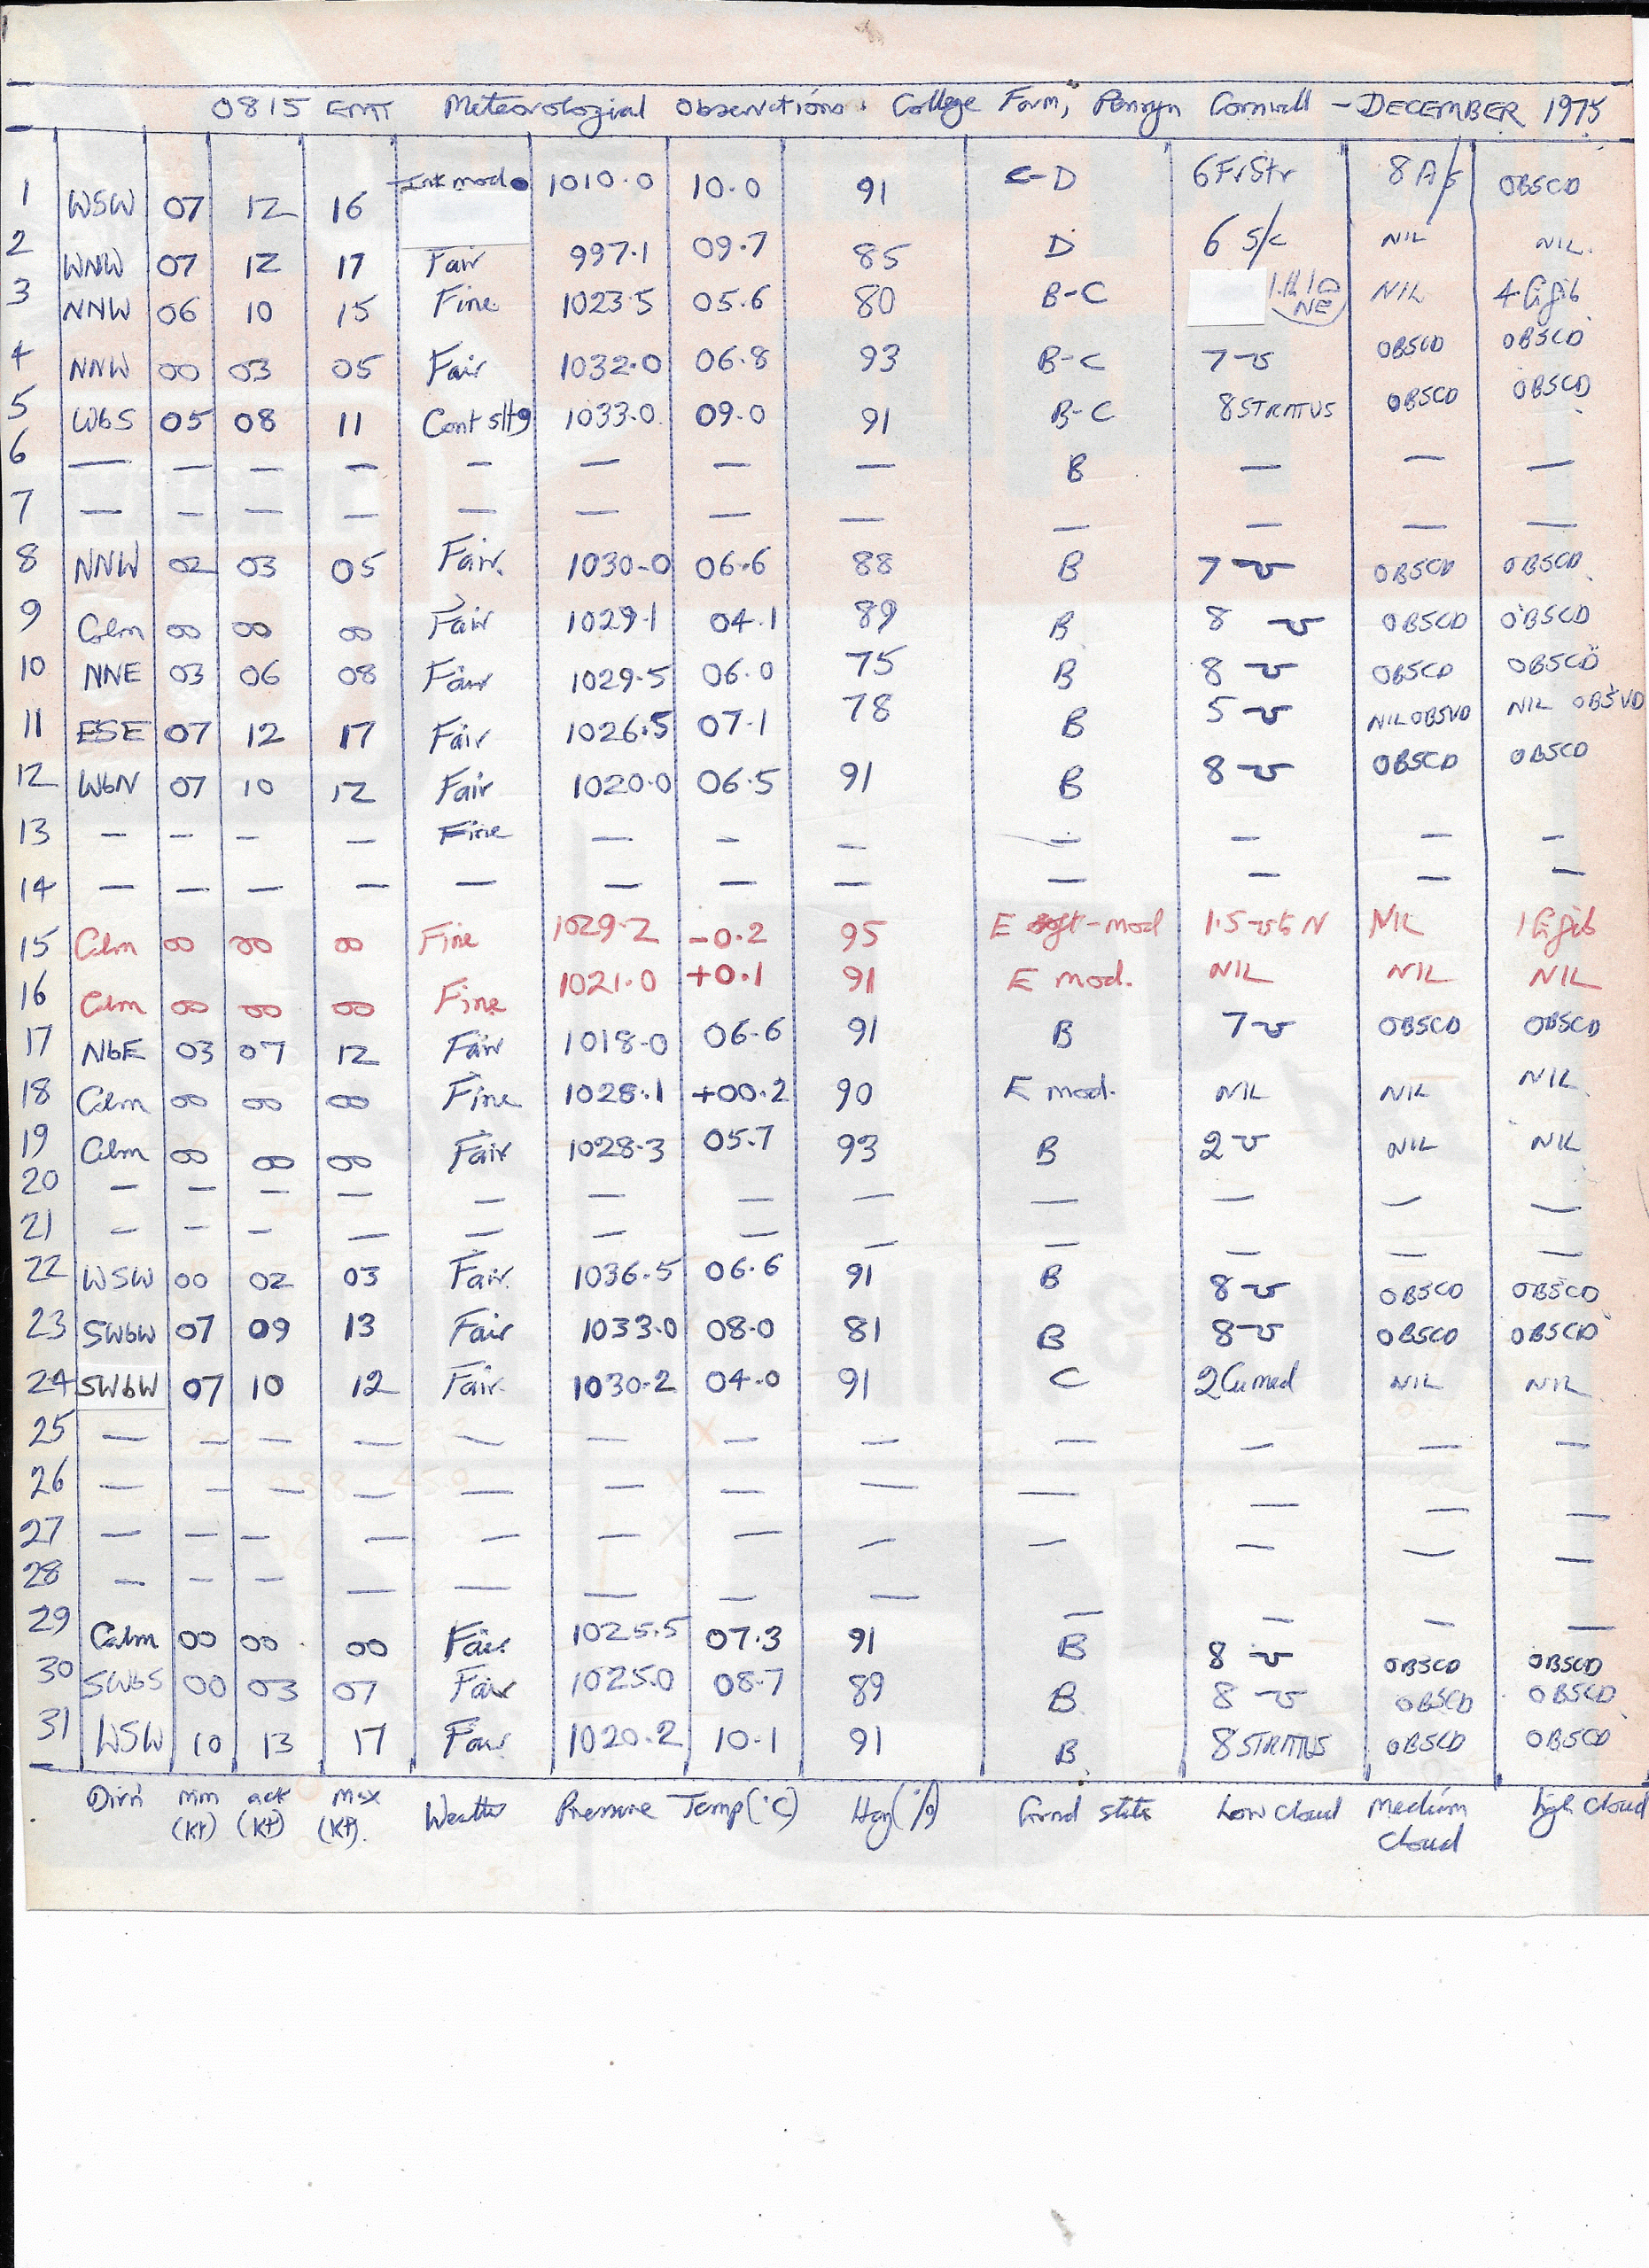 0815 GMT Meteorological Observations: College Farm, Penryn Cornwall - DECEMBER 1975
1 WSW 07 12 16 Int mod 1010.0 10.0 91 C-D 6 FrStr 8 A/s OBSCD
2 WNW 07 12 17 Fair 997.1 09.7 85 D 6 S/c NIL NIL.
3 NNW 06 10 15 Fine 1023.5 05.6 80 B-C NE NIL 4
4 NNW 00 03 05 Fair 1032.0 06.8 93 B-C 7 OBSCD OBSCD
5 WbS 05 08 11 Cont slt 1033.0 09.0 91 B-C 8 STRATUS OBSCD OBSCD
6 — — — — — — — — B — — —
7 — — — — — — — — — — — —
8 NNW 02 03 05 Fair. 1030.0 06.6 88 B 7 OBSCD OBSCD
9 Calm 00 00 00 Fair 1029.1 04.1 89 B 8 OBSCD OBSCD
10 NNE 03 06 08 Fair 1029.5 06.0 75 B 8 OBSCD OBSCD
11 ESE 07 12 17 Fair 1026.5 07.1 78 B 5 NIL OBSVD NIL OBSVD
12 WbN 07 10 12 Fair 1020.0 06.5 91 B 8 OBSCD OBSCD
13 — — — — Fine — — — — — — —
14 — — — — — — — — — — — —
15 Calm 00 00 00 Fine 1029.2 -0.2 95 E -mod 1.5 N NIL 1
16 Calm 00 00 00 Fine 1021.0 +0.1 91 E mod. NIL NIL NIL
17 NbE 03 07 12 Fair 1018.0 06.6 91 B 7 OBSCD OBSCD
18 Calm 00 00 00 Fine 1028.1 +00.2 90 E mod. NIL NIL NIL
19 Calm 00 00 00 Fair 1028.3 05.7 93 B 2 NIL NIL
20 — — — — — — — — — — — —
21 — — — — — — — — — — — —
22 WSW 00 02 03 Fair. 1036.5 06.6 91 B 8 OBSCD OBSCD
23 SWbW 07 09 13 Fair 1033.0 08.0 81 B 8 OBSCD OBSCD
24 SWbW 07 10 12 Fair. 1030.2 04.0 91 C 2 Cu med NIL NIL
25 — — — — — — — — — — — —
26 — — — — — — — — — — — —
27 — — — — — — — — — — — —
28 — — — — — — — — — — — —
29 Calm 00 00 00 Fair 1025.5 07.3 91 B 8 OBSCD OBSCD
30 SWbS 00 03 07 Fair 1025.0 08.7 89 B 8 OBSCD OBSCD
31 WSW 10 13 17 Fair 1020.2 10.1 91 B 8 STRATUS OBSCD OBSCD
Dirn min (Kt) act (Kt) Max (Kt). Weather Pressure Temp(°C) (%) Grnd state Low Cloud Medium Cloud high Cloud